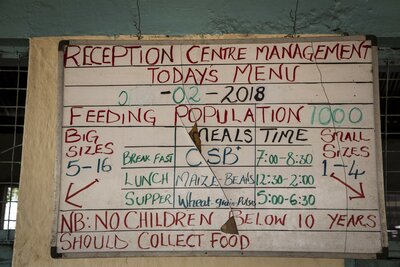 RECEPTION CENTRE MANAGEMENT
TODAYS MENU
-02-2018
FEEDING POPULATION 1000
BIG SIZES 5-16
MEALS TIME
SMALL SIZES 1-4
BREAK FAST CSB+ 7:00-8:30
LUNCH MAIZE-BEANS 12:30-2:00
SUPPER Wheat grain Pulses 5:00-6:30
NB: NO CHILDREN BELOW 10 YEARS
SHOULD COLLECT FOOD